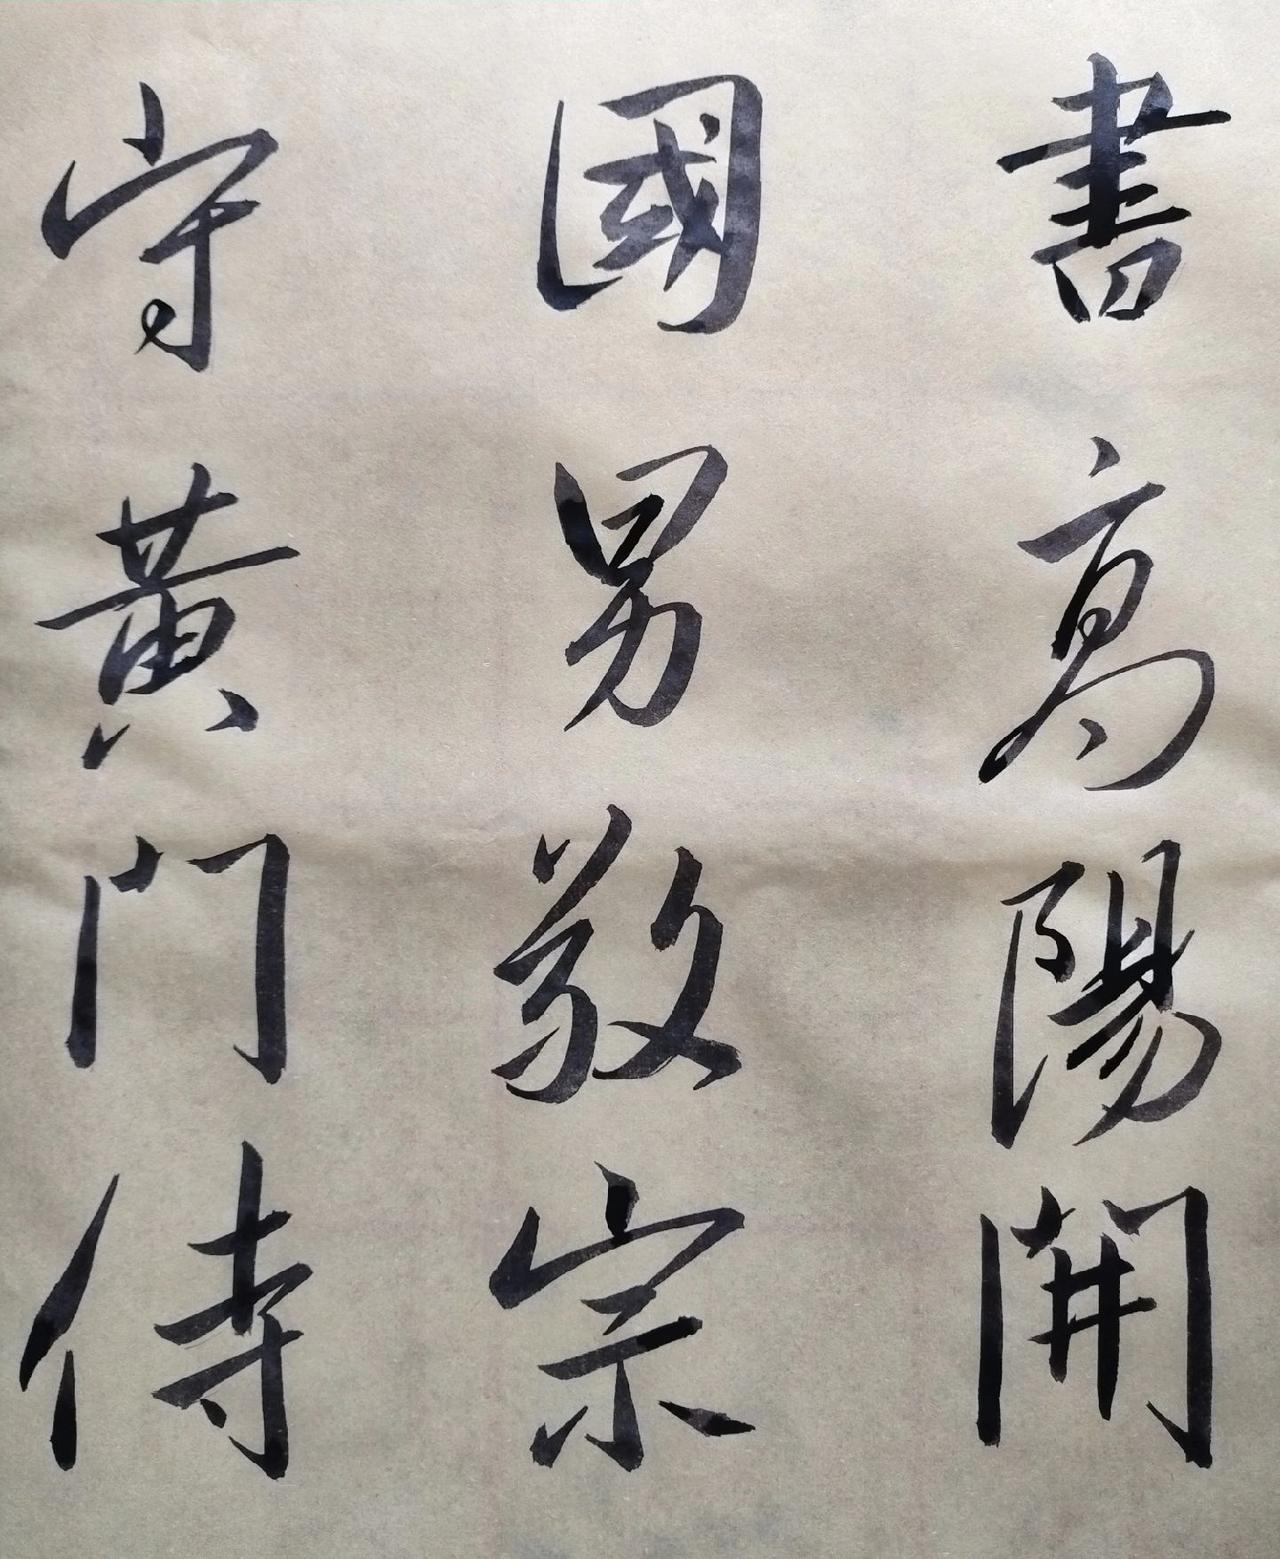 書高陽開
國男敬宗
守黃門侍